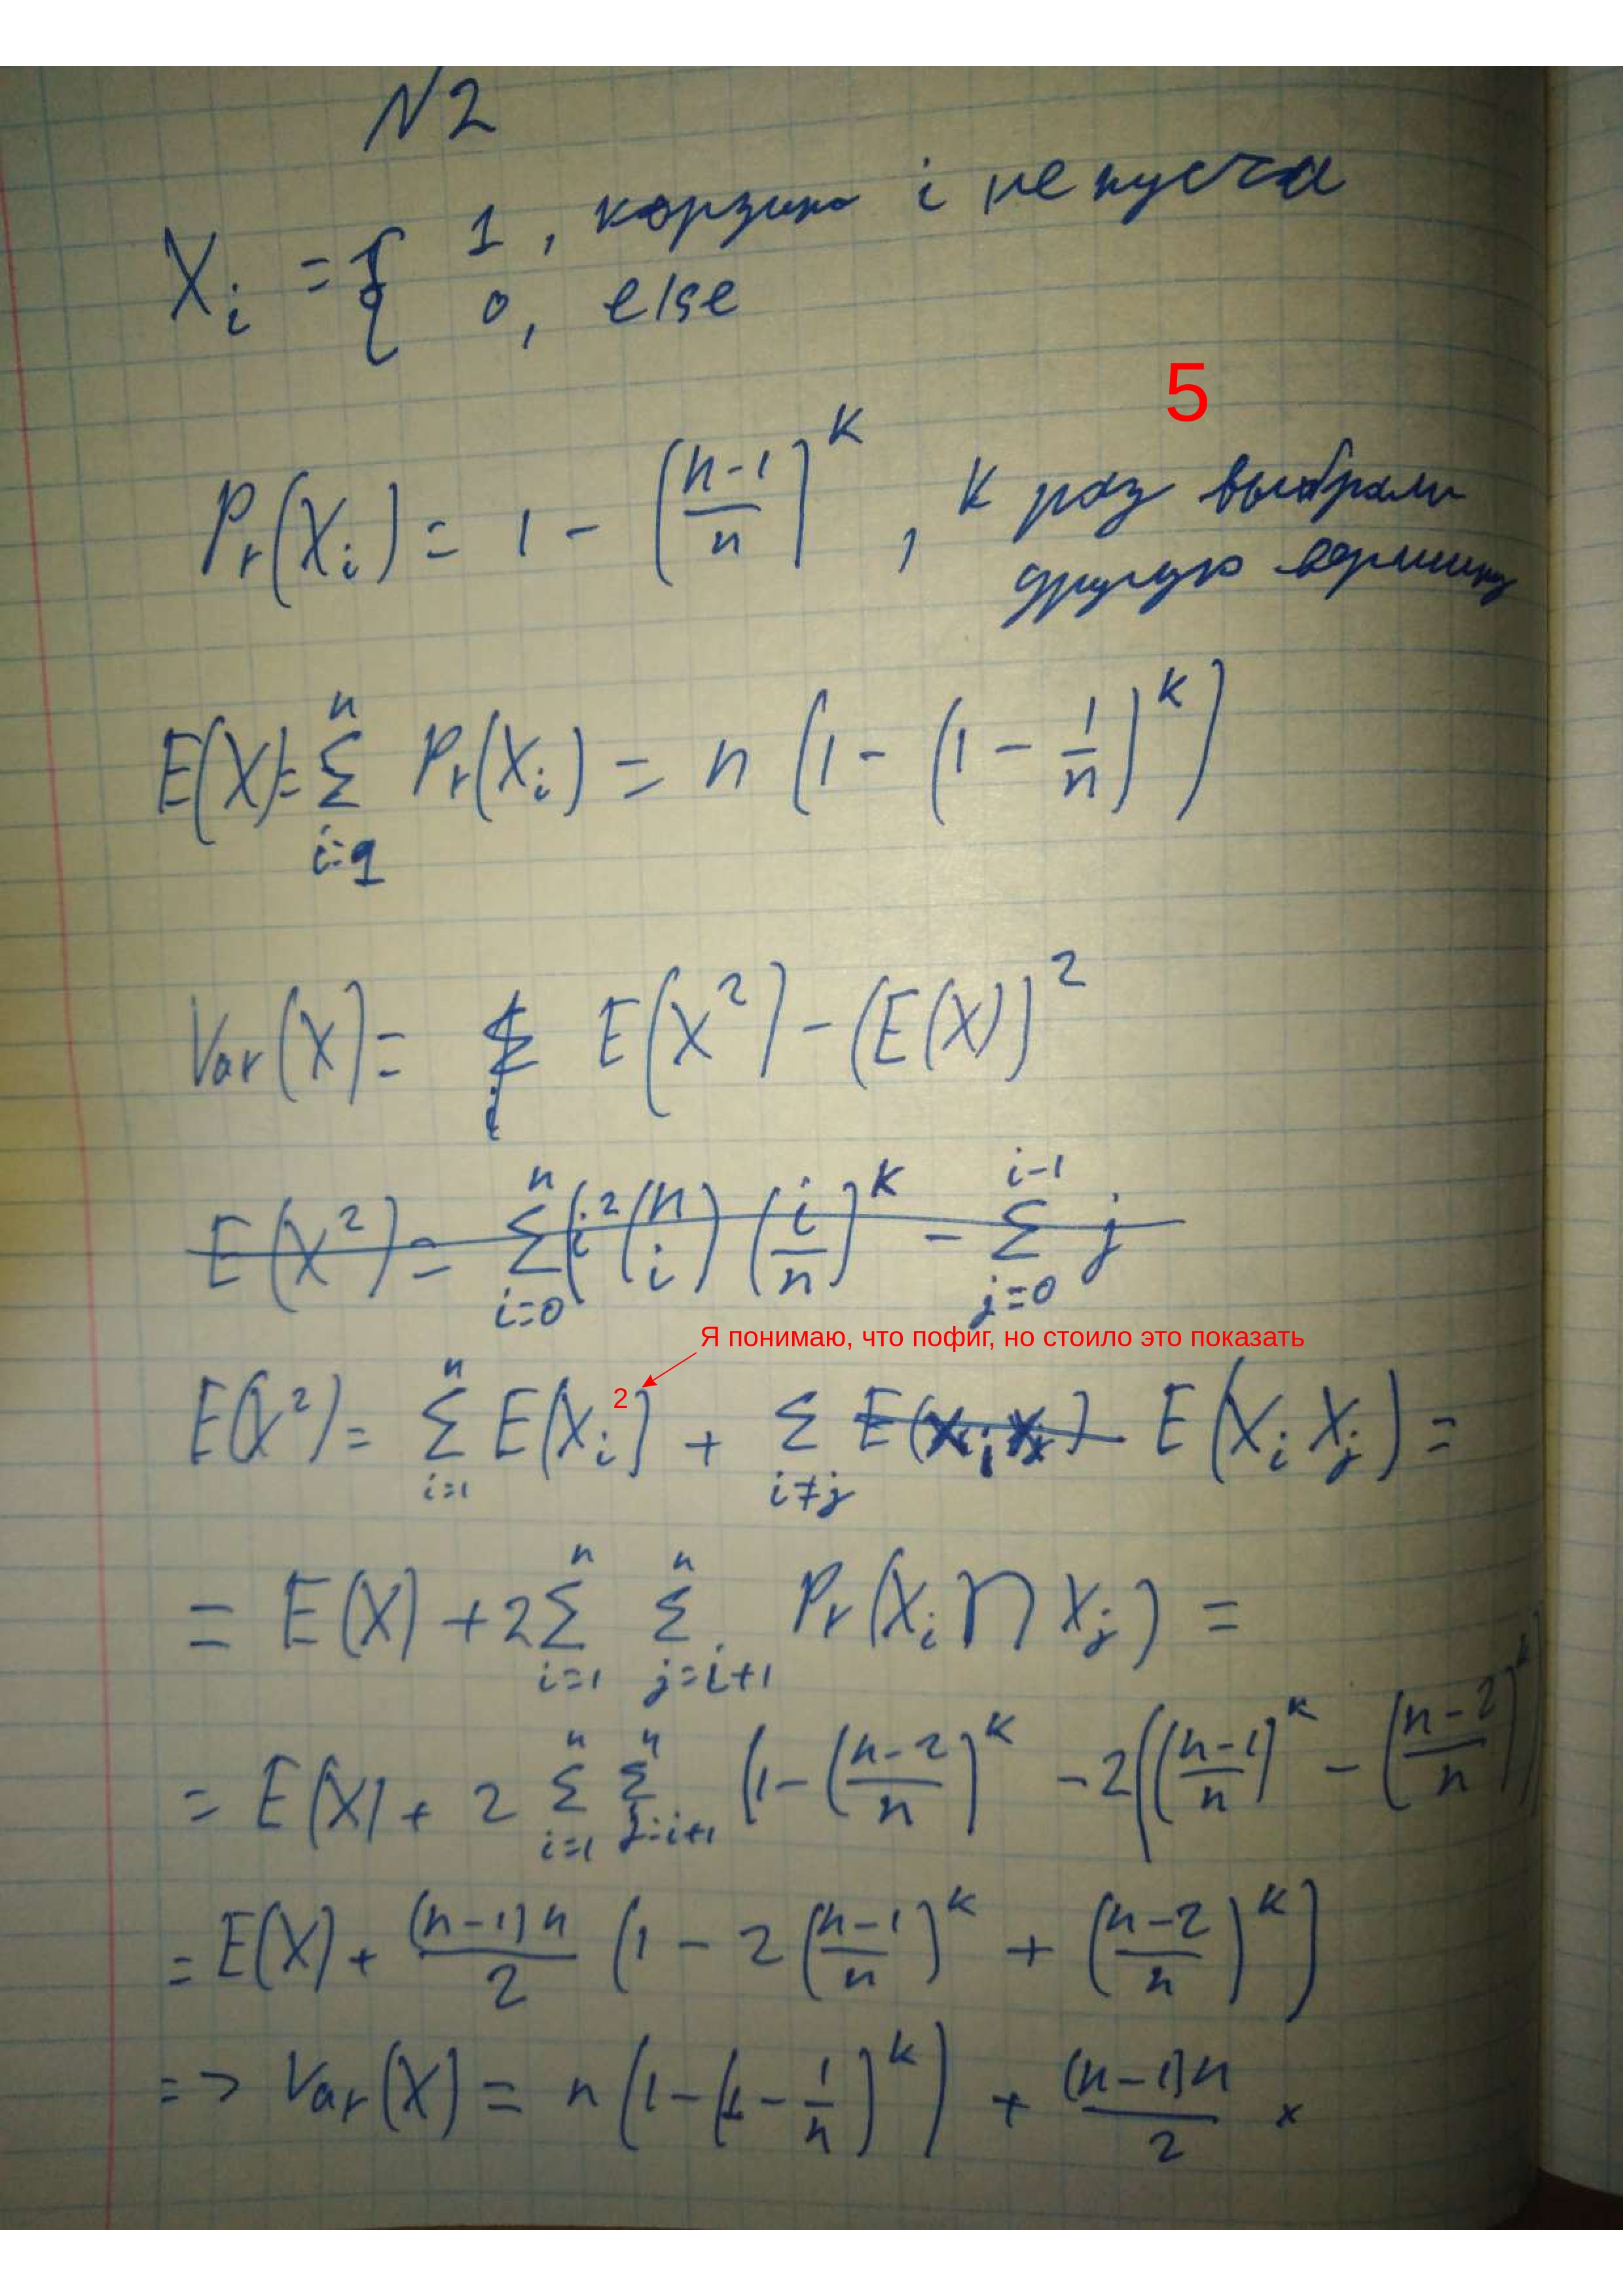 N2
X_i = { 1, корзина i не пуста
0, else
5
Pr(X_i) = 1 - ((n-1)/n)^k, k раз выбрали
другую вершину
E(X) = Σ_{i=1}^{n} Pr(X_i) = n (1 - (1 - 1/n)^k)
Var(X) = E(X^2) - (E(X))^2
E(X^2) = Σ_{i=0}^{n} (i^2 (n i) (i/n)^k - Σ_{j=0}^{i-1} j
Я понимаю, что пофиг, но стоило это показать
2
E(X^2) = Σ_{i=1}^{n} E(X_i) + Σ_{i≠j} E(X_i X_j) E(X_i X_j) =
= E(X) + 2 Σ_{i=1}^{n} Σ_{j=i+1}^{n} Pr(X_i ∩ X_j) =
= E(X) + 2 Σ_{i=1}^{n} Σ_{j=i+1}^{n} (1 - ((n-2)/n)^k - 2(((n-1)/n)^k - ((n-2)/n)^k))
= E(X) + (n-1)n/2 (1 - 2((n-1)/n)^k + ((n-2)/n)^k)
=> Var(X) = n (1 - (1 - 1/n)^k) + (n-1)n/2 ×